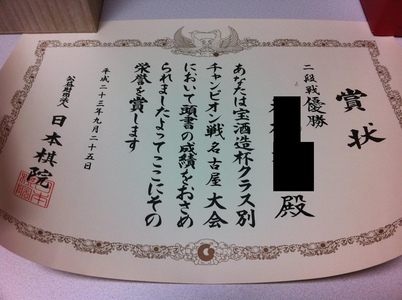 賞状
二段戦優勝
殿
あなたは宝酒造杯クラス別
チャンピオン戦名古屋大会
において頭書の成績をおさめ
られましたよってここにその
栄誉を賞します
平成二十三年九月二十五日
公益財団法人
日本棋院